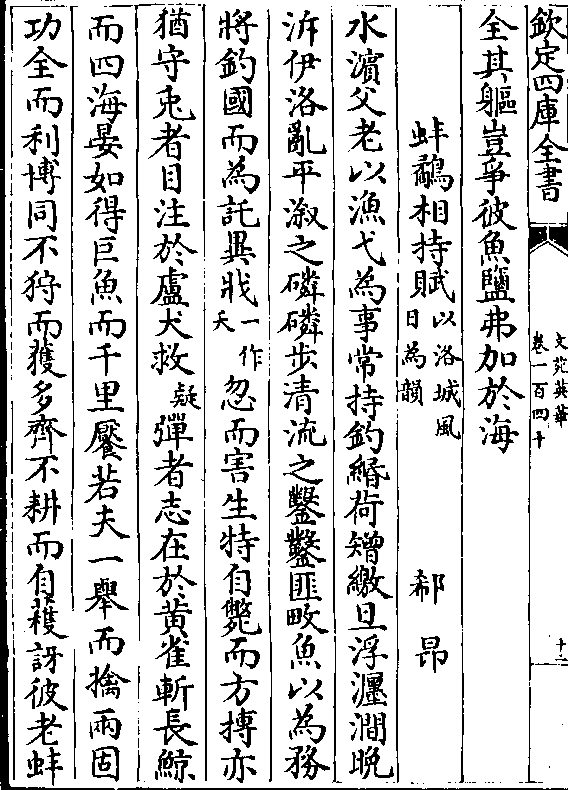 欽定四庫全書
文苑英華
卷一百四十
十二
全其軀豈爭彼魚鹽弗加於海
蚌鷸相持賦以洛城風日為韻
郗昂
水濱父老以漁弋為事常持釣緡荷矰繳旦浮瀍澗晩
泝伊洛亂平溆之磷磷步清流之鑿鑿匪畋魚以為務
將釣國而為託異戕一作夭忽而害生特自斃而方摶亦
猶守兎者目注於盧犬救疑彈者志在於黄雀斬長鯨
而四海晏如得巨魚而千里饜若夫一舉而擒兩固
功全而利博同不狩而獲多齊不耕而自穫訝彼老蚌